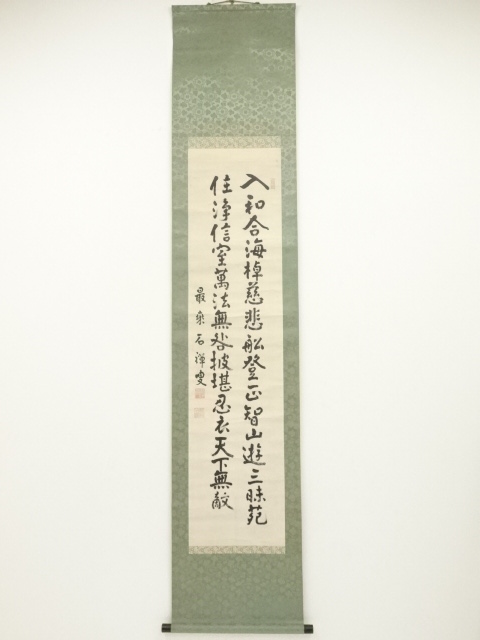 入和合海棹慈悲舩登正智山遊三昧苑
住淨信室萬法無咎披堪忍衣天下無敵
最乗石禅叟